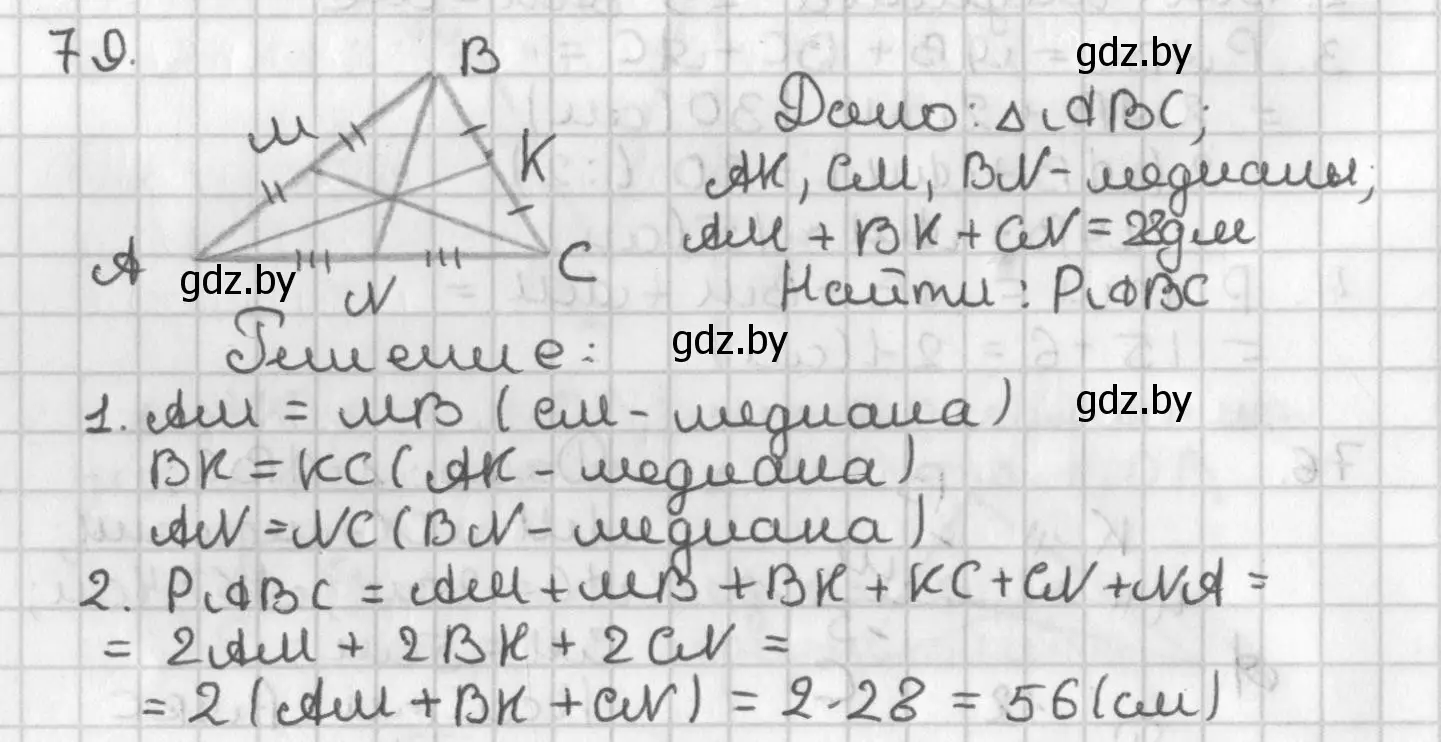 79.
B
gdz.by
M
Дано: △ABC;
K
AK, CM, BN - медианы;
AM + BK + CN = 28дм
A
C
gdz.by
N
Найти: PABC
Решение:
gdz.by
1. AM = MB (CM - медиана)
gdz.by
BK = KC (AK - медиана)
AN = NC (BN - медиана)
2. PABC = AM + MB + BK + KC + CN + NA =
= 2AM + 2BK + 2CN =
= 2 (AM + BK + CN) = 2·28 = 56 (см)